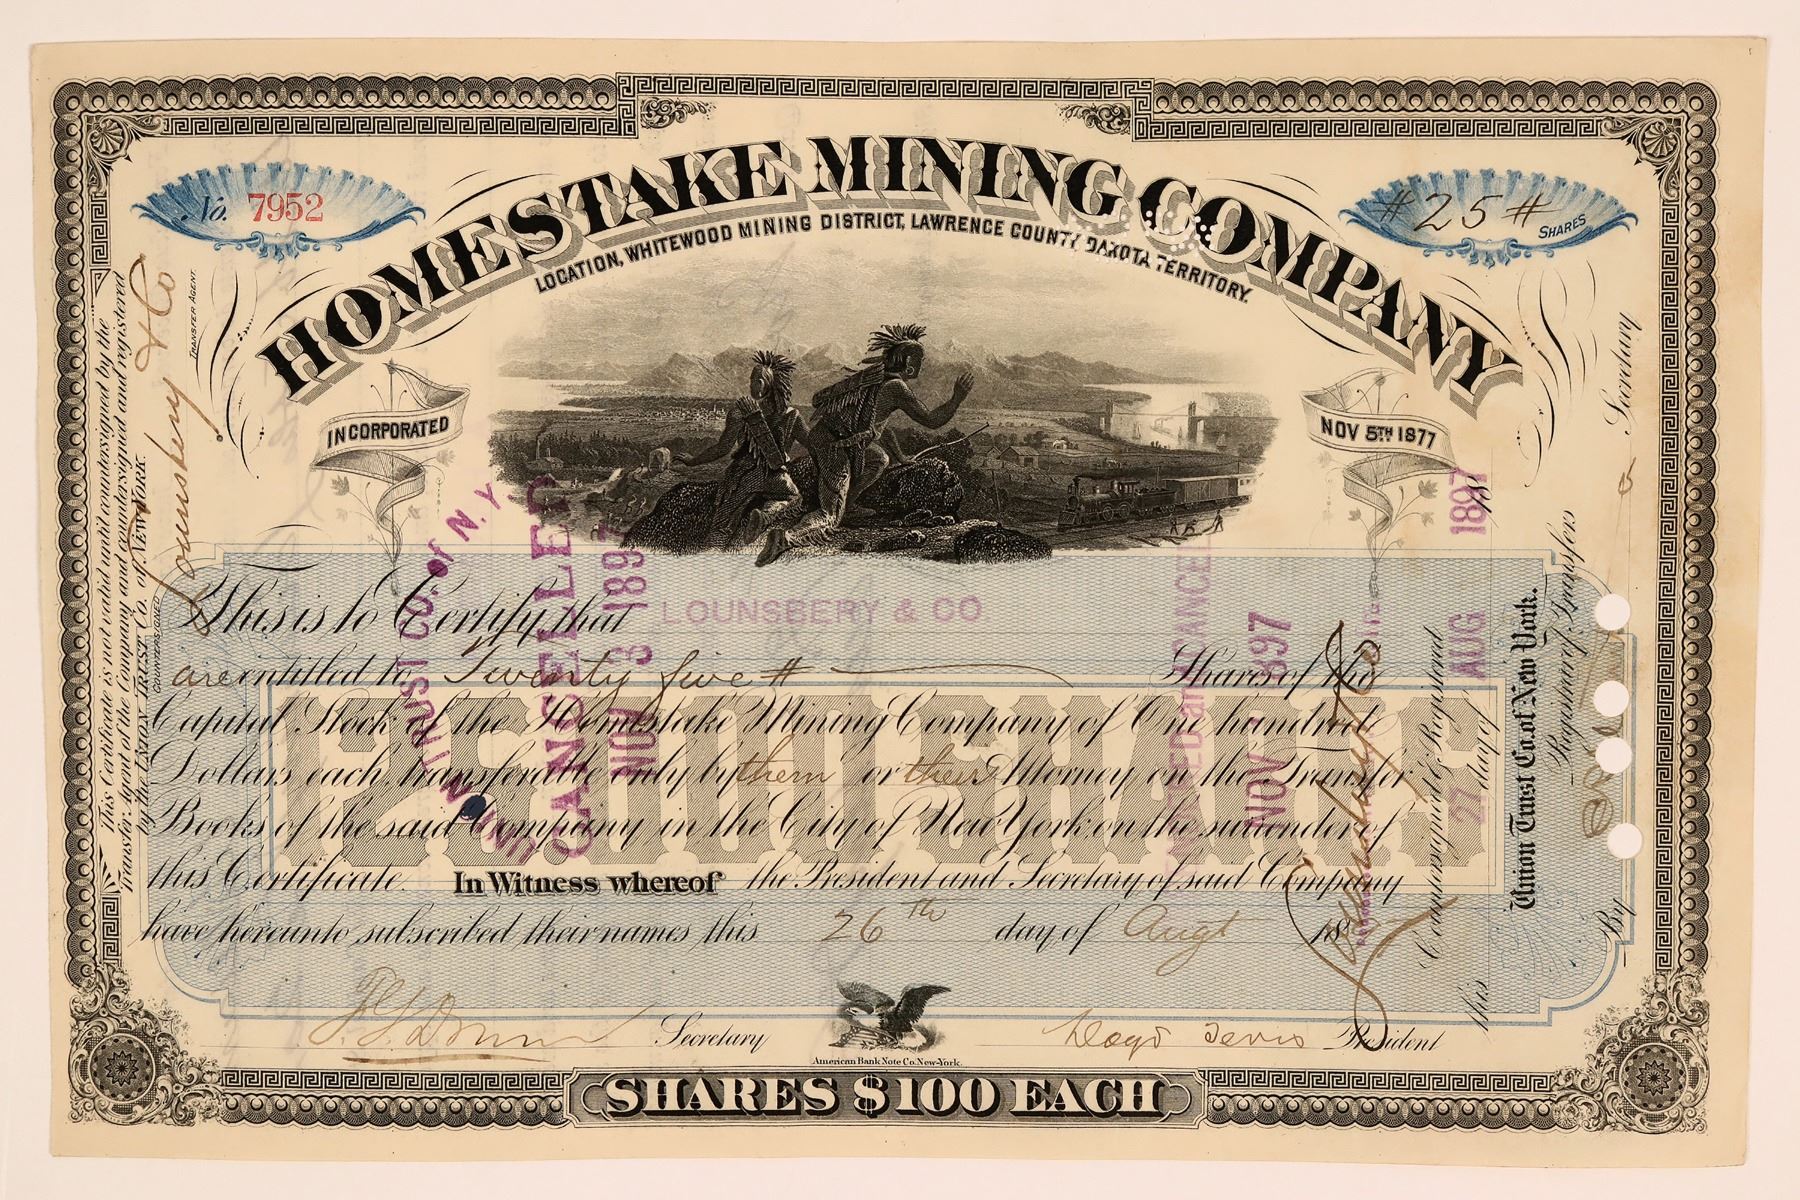 No. 7952
#25# SHARES
HOMESTAKE MINING COMPANY
LOCATION, WHITEWOOD MINING DISTRICT, LAWRENCE COUNTY DAKOTA TERRITORY.
INCORPORATED
NOV 5TH 1877
This is to Certify that LOUNSBERY & CO
are entitled to Twenty five # Shares of the
Capital Stock of the Homestake Mining Company of One hundred
Dollars each, transferable only by them or their Attorney on the Transfer
Books of the said Company in the City of New York on the surrender of
this Certificate. In Witness whereof the President and Secretary of said Company
have hereunto subscribed their names this 26th day of Augt 18
Secretary
Lloyd Tevis President
American Bank Note Co. New-York.
SHARES $100 EACH
25 SHARES
This Certificate is not valid until countersigned by the
Transfer Agent of the Company and countersigned and registered
by the UNION TRUST CO. of NEW YORK.
COUNTERSIGNED Lounsbery & Co
TRANSFER AGENT.
UNION TRUST CO. of N. Y.
CANCELLED
NOV 3 1897
NOV 1897
Lounsbery & Co
Countersigned & Registered
this 27 day of AUG 1897
Union Trust Co. of New York.
Registrar of Transfers
By Secretary